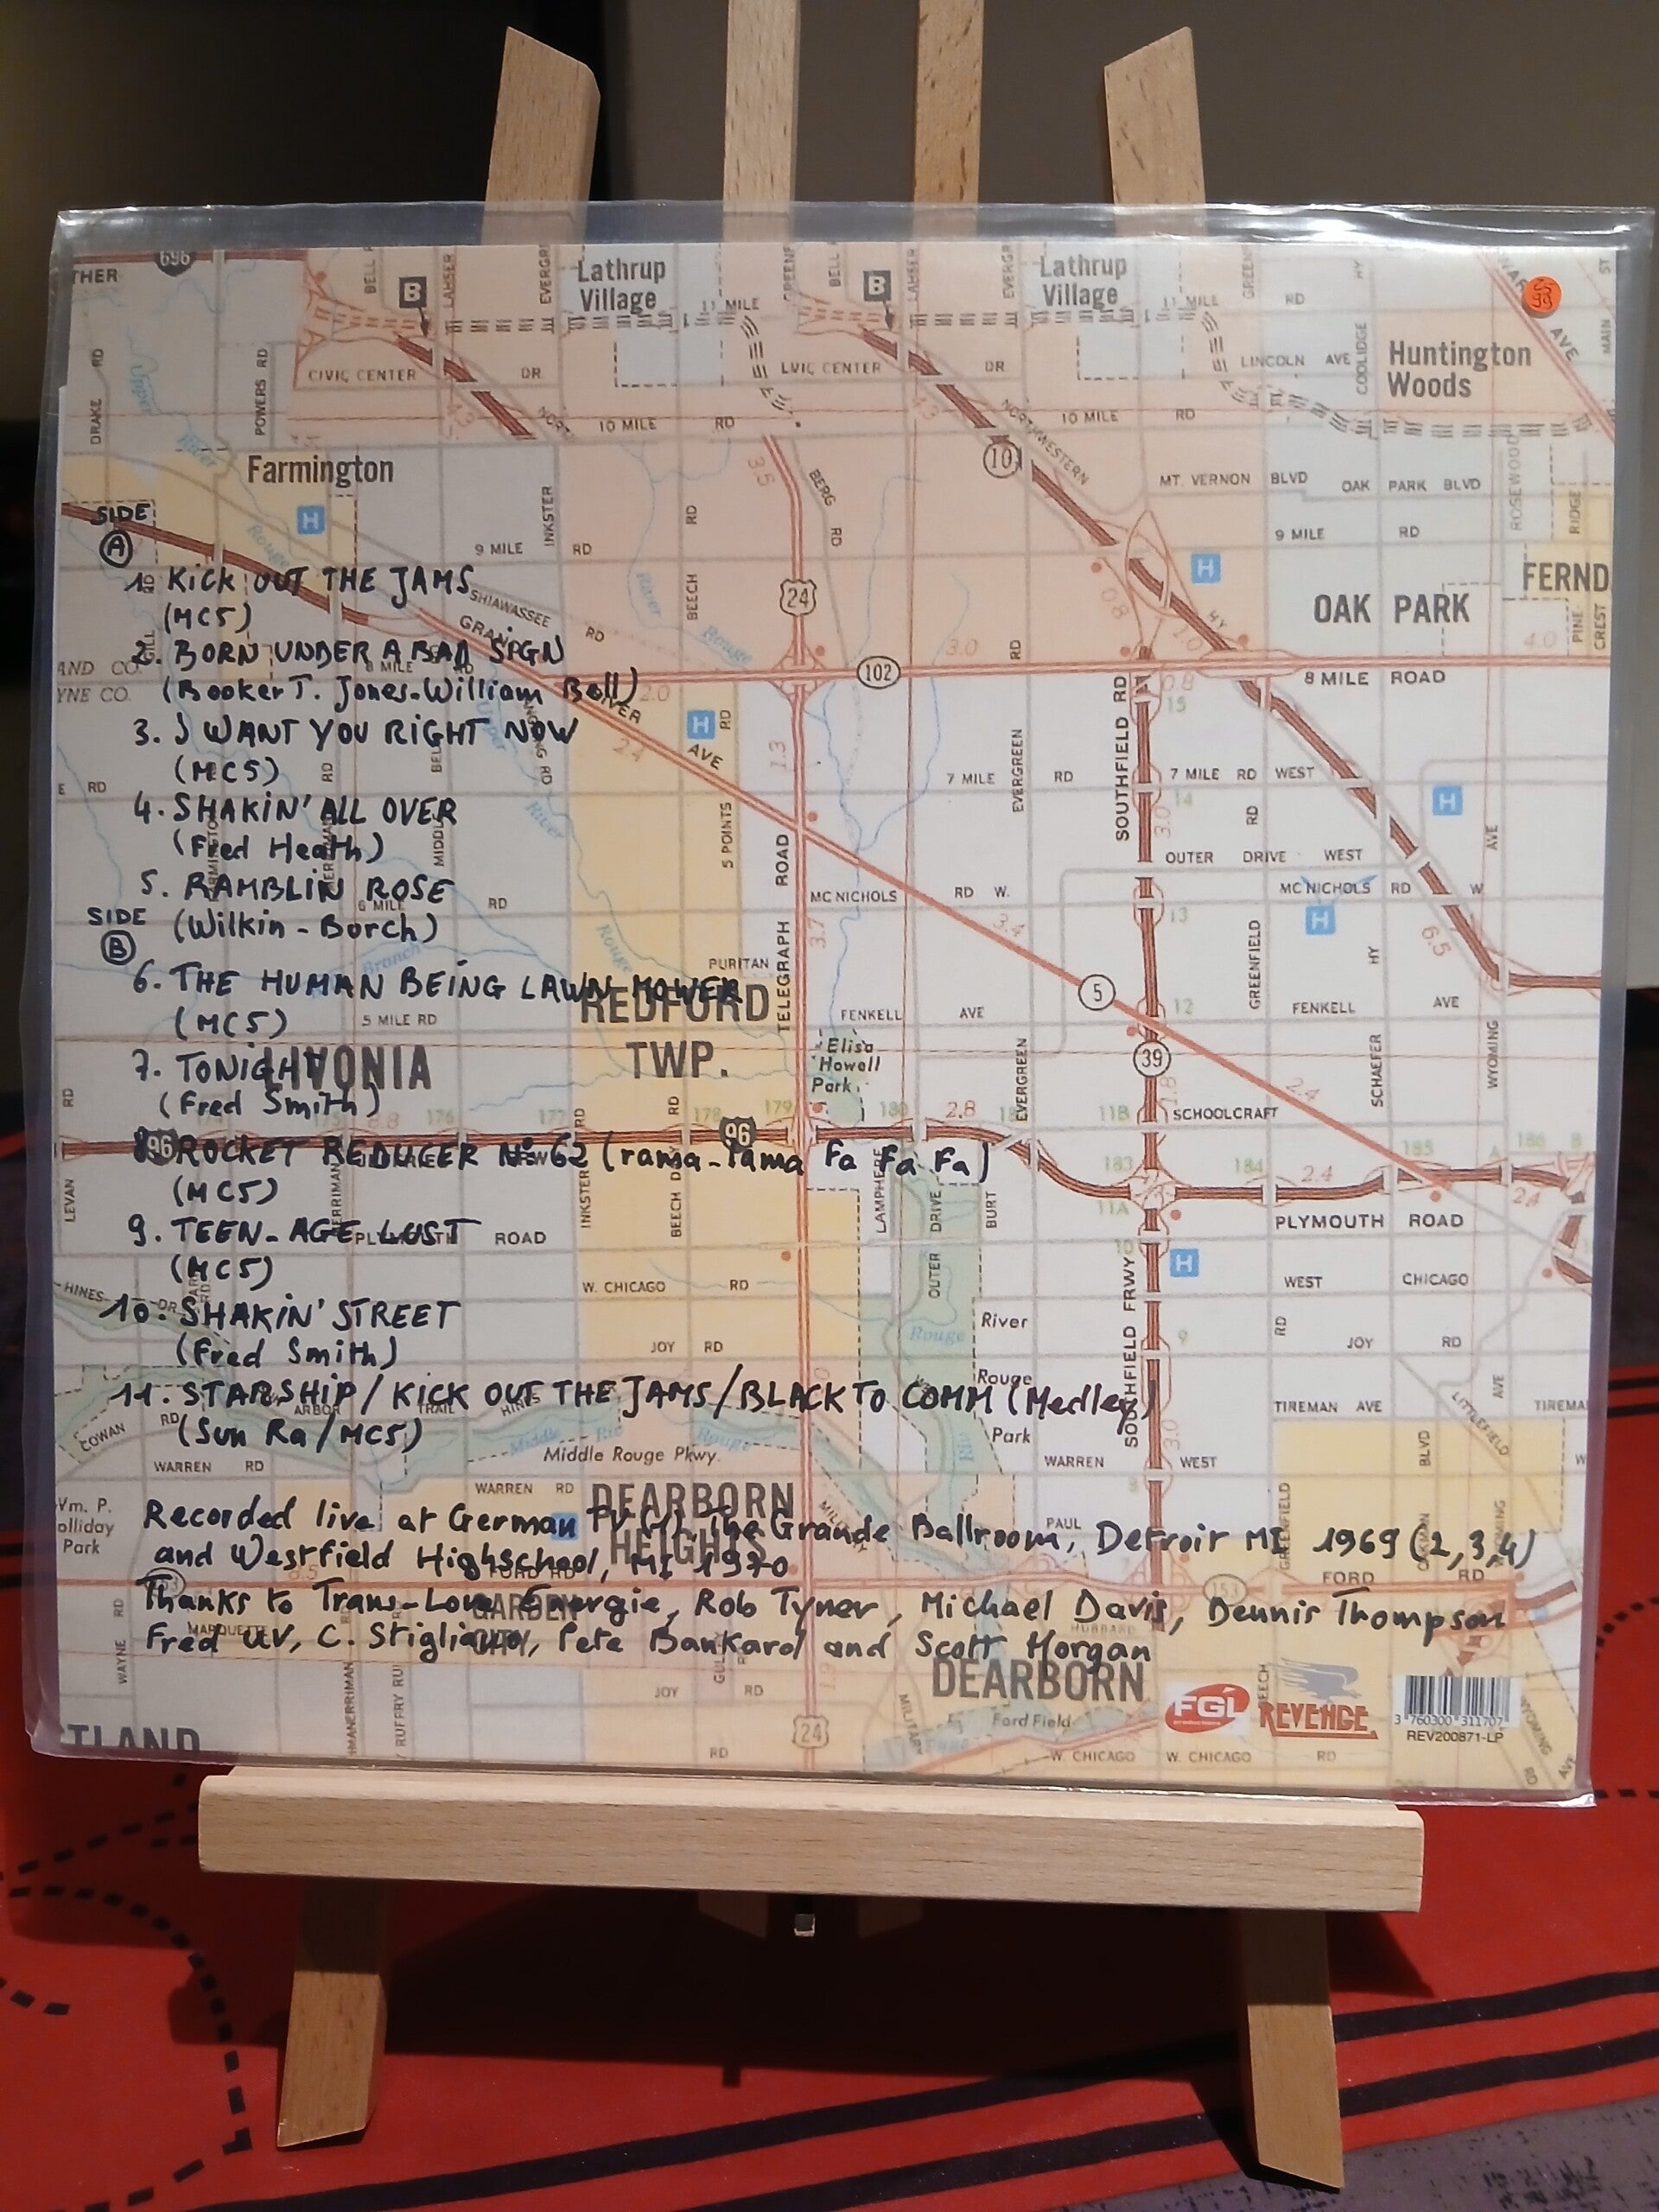 SIDE
A
1. KICK OUT THE JAMS
(MC5)
2. BORN UNDER A BAD SIGN
(Booker T. Jones-William Bell)
3. I WANT YOU RIGHT NOW
(MC5)
4. SHAKIN' ALL OVER
(Fred Heath)
5. RAMBLIN ROSE
(Wilkin - Borch)
SIDE
B
6. THE HUMAN BEING LAWN MOWER
(MC5)
7. TONIGHT
(Fred Smith)
8. ROCKET REDUCER N° 62 (rama-lama Fa Fa Fa)
(MC5)
9. TEEN-AGE LUST
(MC5)
10. SHAKIN' STREET
(Fred Smith)
11. STARSHIP / KICK OUT THE JAMS / BLACK TO COMM (Medley)
(Sun Ra / MC5)
Recorded live at German TV (1), The Grande Ballroom, Detroit MI 1969 (2,3,4)
and Westfield Highschool, MI 1970
Thanks to Trans-Love Energie, Rob Tyner, Michael Davis, Dennis Thompson
Fred UV, C. Stigliano, Pete Bankard and Scott Morgan
FGL
REVENGE
3 760300 311707
REV200871-LP
696
B
Lathrup
Village
11 MILE
B
Lathrup
Village
11 MILE
LINCOLN AVE
Huntington
Woods
CIVIC CENTER DR
CIVIC CENTER DR
10 MILE RD
10 MILE RD
NORTHWESTERN HY
10
MT. VERNON BLVD
OAK PARK BLVD
Farmington
H
9 MILE RD
9 MILE RD
H
FERND
OAK PARK
24
SHIAWASSEE RD
GRAND RIVER AVE
102
8 MILE ROAD
H
7 MILE RD
7 MILE RD WEST
H
OUTER DRIVE WEST
MC NICHOLS RD W.
MC NICHOLS RD W
H
5 POINTS
TELEGRAPH ROAD
SOUTHFIELD RD
PURITAN
REDFORD
TWP.
LIVONIA
5 MILE RD
FENKELL AVE
FENKELL AVE
5
Elisa
Howell
Park
39
SCHOOLCRAFT
96
96
PLYMOUTH ROAD
W. CHICAGO RD
WEST CHICAGO
H
JOY RD
JOY RD
River
Rouge
Park
TIREMAN AVE
TIREMA
Middle Rouge Pkwy.
WARREN RD
WARREN RD
WARREN WEST
DEARBORN
HEIGHTS
Wm. P.
olliday
Park
FORD RD
FORD RD
153
GARDEN
CITY
DEARBORN
Ford Field
JOY RD
24
W. CHICAGO
W. CHICAGO RD
TLAND